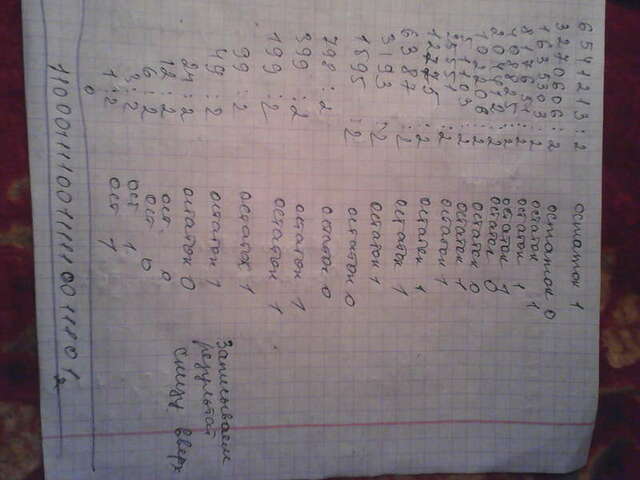 6541213 : 2 остаток 1
3270606 : 2 остаток 0
1635303 : 2 остаток 1
817651 : 2 остаток 1
408825 : 2 остаток 1
204412 : 2 остаток 0
102206 : 2 остаток 0
51103 : 2 остаток 1
25551 : 2 остаток 1
12775 : 2 остаток 1
6387 : 2 остаток 1
3193 : 2 остаток 1
1596 : 2 остаток 0
798 : 2 остаток 0
399 : 2 остаток 1
199 : 2 остаток 1
99 : 2 остаток 1
49 : 2 остаток 1
24 : 2 остаток 0
12 : 2 ост. 0
6 : 2 ост 0
3 : 2 ост 1
1 : 2 ост 1
0
Записываем
результат
снизу вверх
11000111100111110011101₂